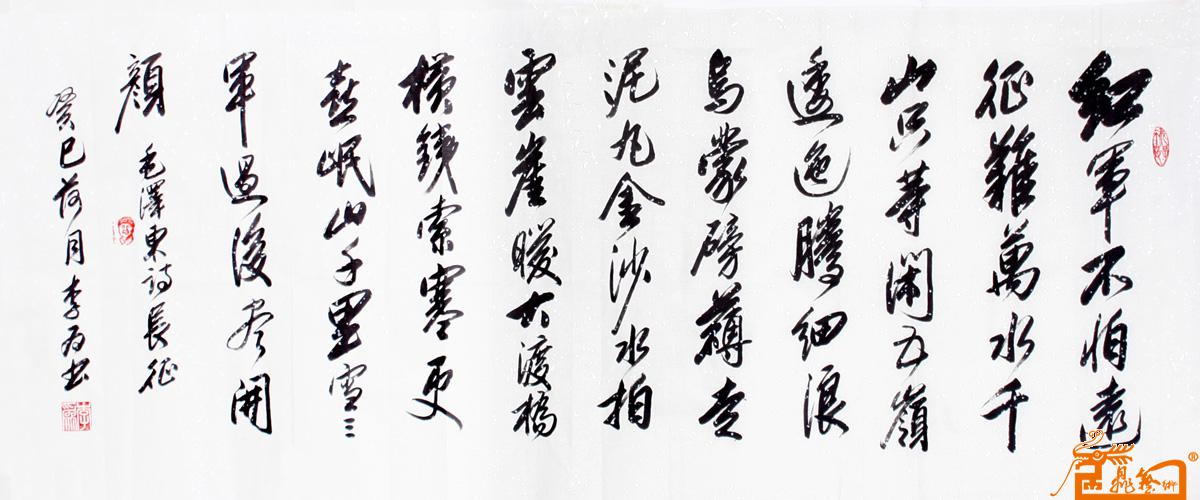 紅軍不怕遠
征難萬水千
山只等閒五嶺
逶迤騰細浪
烏蒙磅礴走
泥丸金沙水拍
雲崖暖大渡橋
橫鐵索寒更
喜岷山千里雪三
軍過後尽開
顏 毛澤東詩長征
癸巳荷月李为书